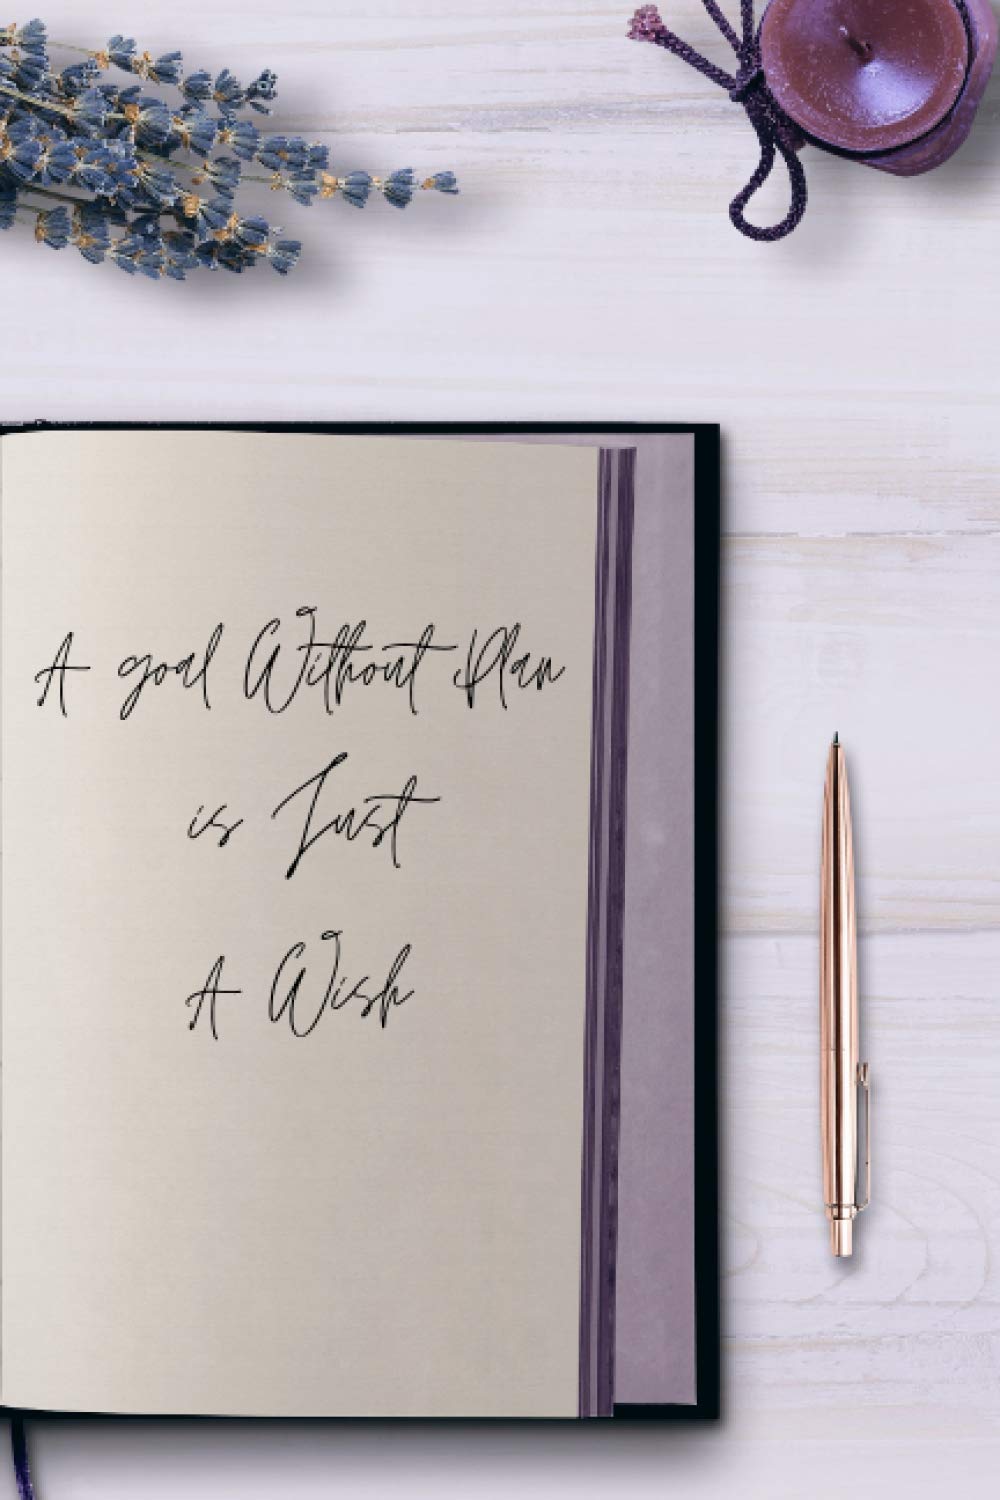 A goal Without Plan
is Just
A Wish